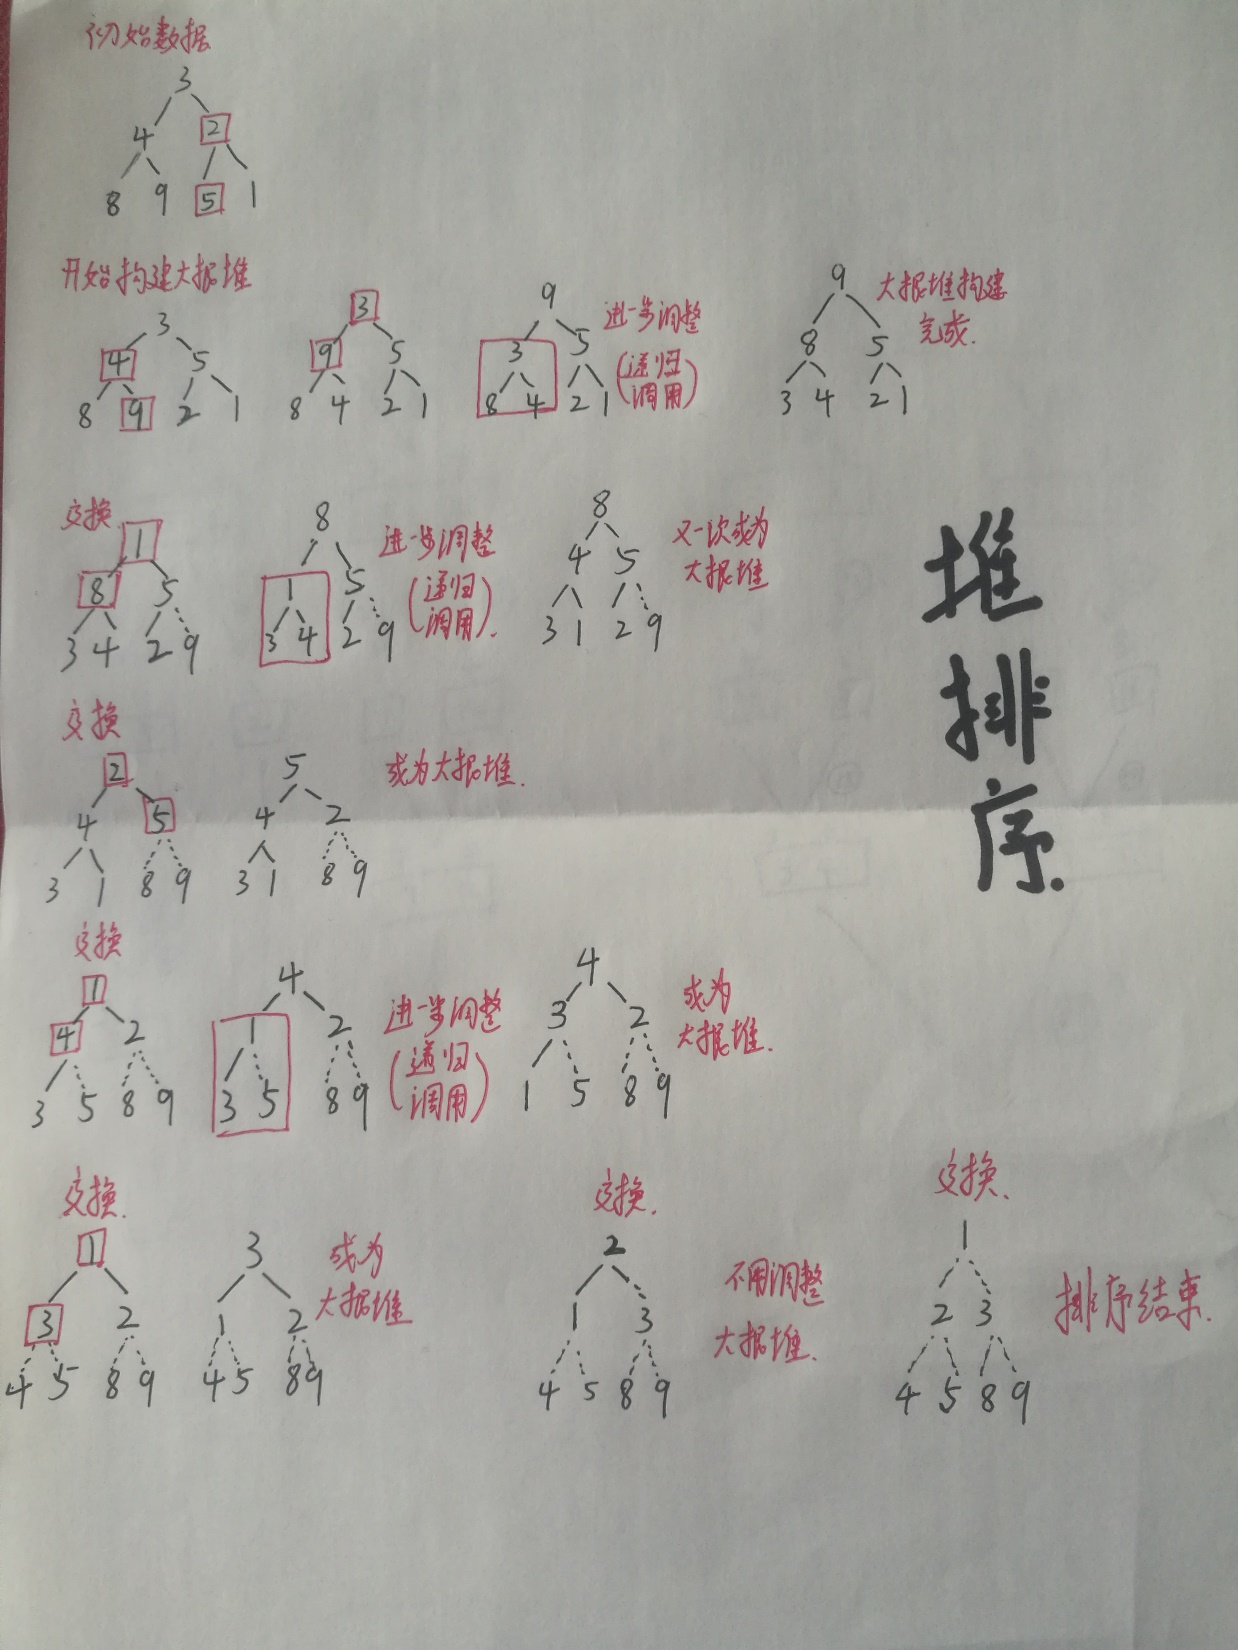 初始数据
3
4 2
8 9 5 1
开始构建大根堆
3
4 5
8 9 2 1
3
9 5
8 4 2 1
9
3 5
8 4 2 1
进一步调整
(递归
调用)
9
8 5
3 4 2 1
大根堆构建
完成.
交换
1
8 5
3 4 2 9
8
1 5
3 4 2 9
进一步调整
(递归
调用).
8
4 5
3 1 2 9
又一次成为
大根堆
堆
排
序.
交换
2
4 5
3 1 8 9
5
4 2
3 1 8 9
成为大根堆.
交换
1
4 2
3 5 8 9
4
1 2
3 5 8 9
进一步调整
(递归
调用)
4
3 2
1 5 8 9
成为
大根堆.
交换.
1
3 2
4 5 8 9
3
1 2
4 5 8 9
成为
大根堆
交换.
2
1 3
4 5 8 9
不用调整
大根堆.
交换.
1
2 3
4 5 8 9
排序结束.